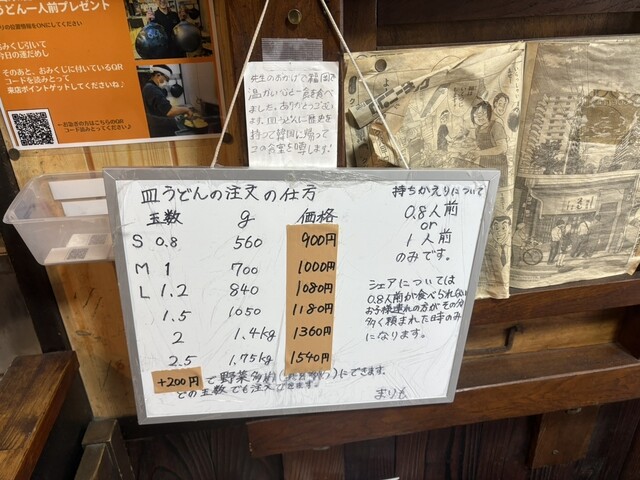 うどん一人前プレゼント
位置情報をONにしてください
おみくじ引いて
今日の運だめし
そのあと、おみくじに付いているQR
コードを読みとって
来店ポイントゲットしてくださいね♪
お急ぎの方はこちらのQR
コード読みとってください♪
先生のおかげで福岡で
温かい一食を食べ
ました。ありがとうござい
ます。皿うどんに歴史を
持って韓国に帰って
この食堂を噂します!
皿うどんの注文の仕方
玉数 g 価格
S 0.8 560 900円
M 1 700 1000円
L 1.2 840 1080円
1.5 1050 1180円
2 1.4kg 1360円
2.5 1.75kg 1540円
+200円で野菜多めにできます。
どの玉数でも注文できます。
持ちかえりについて
0.8人前
or
1人前
のみです。
シェアについては
0.8人前が食べられない
お子様連れの方がその分
多く頼まれた時のみ
になります。